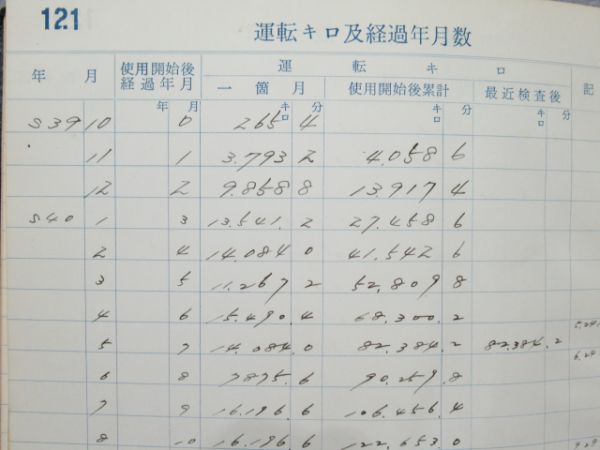 121
運転キロ及経過年月数
年 月 使用開始後経過年月 運 転 キ ロ 記
一箇月 使用開始後累計 最近検査後
年 月 キロ 分 キロ 分 キロ 分
S39 10 0 265 4
11 1 3.793 2 4.058 6
12 2 9.858 8 13.917 4
S40 1 3 13.541. 2 27.458 6
2 4 14.084 0 41.542 6
3 5 11.267 2 52.809 8
4 6 15.490.4 68.300.2
5 7 14.084.0 82.384.2 82.384.2
6 8 7875.6 90.259.8
7 9 16.196.6 106.456.4
8 10 16.196.6 122.653.0